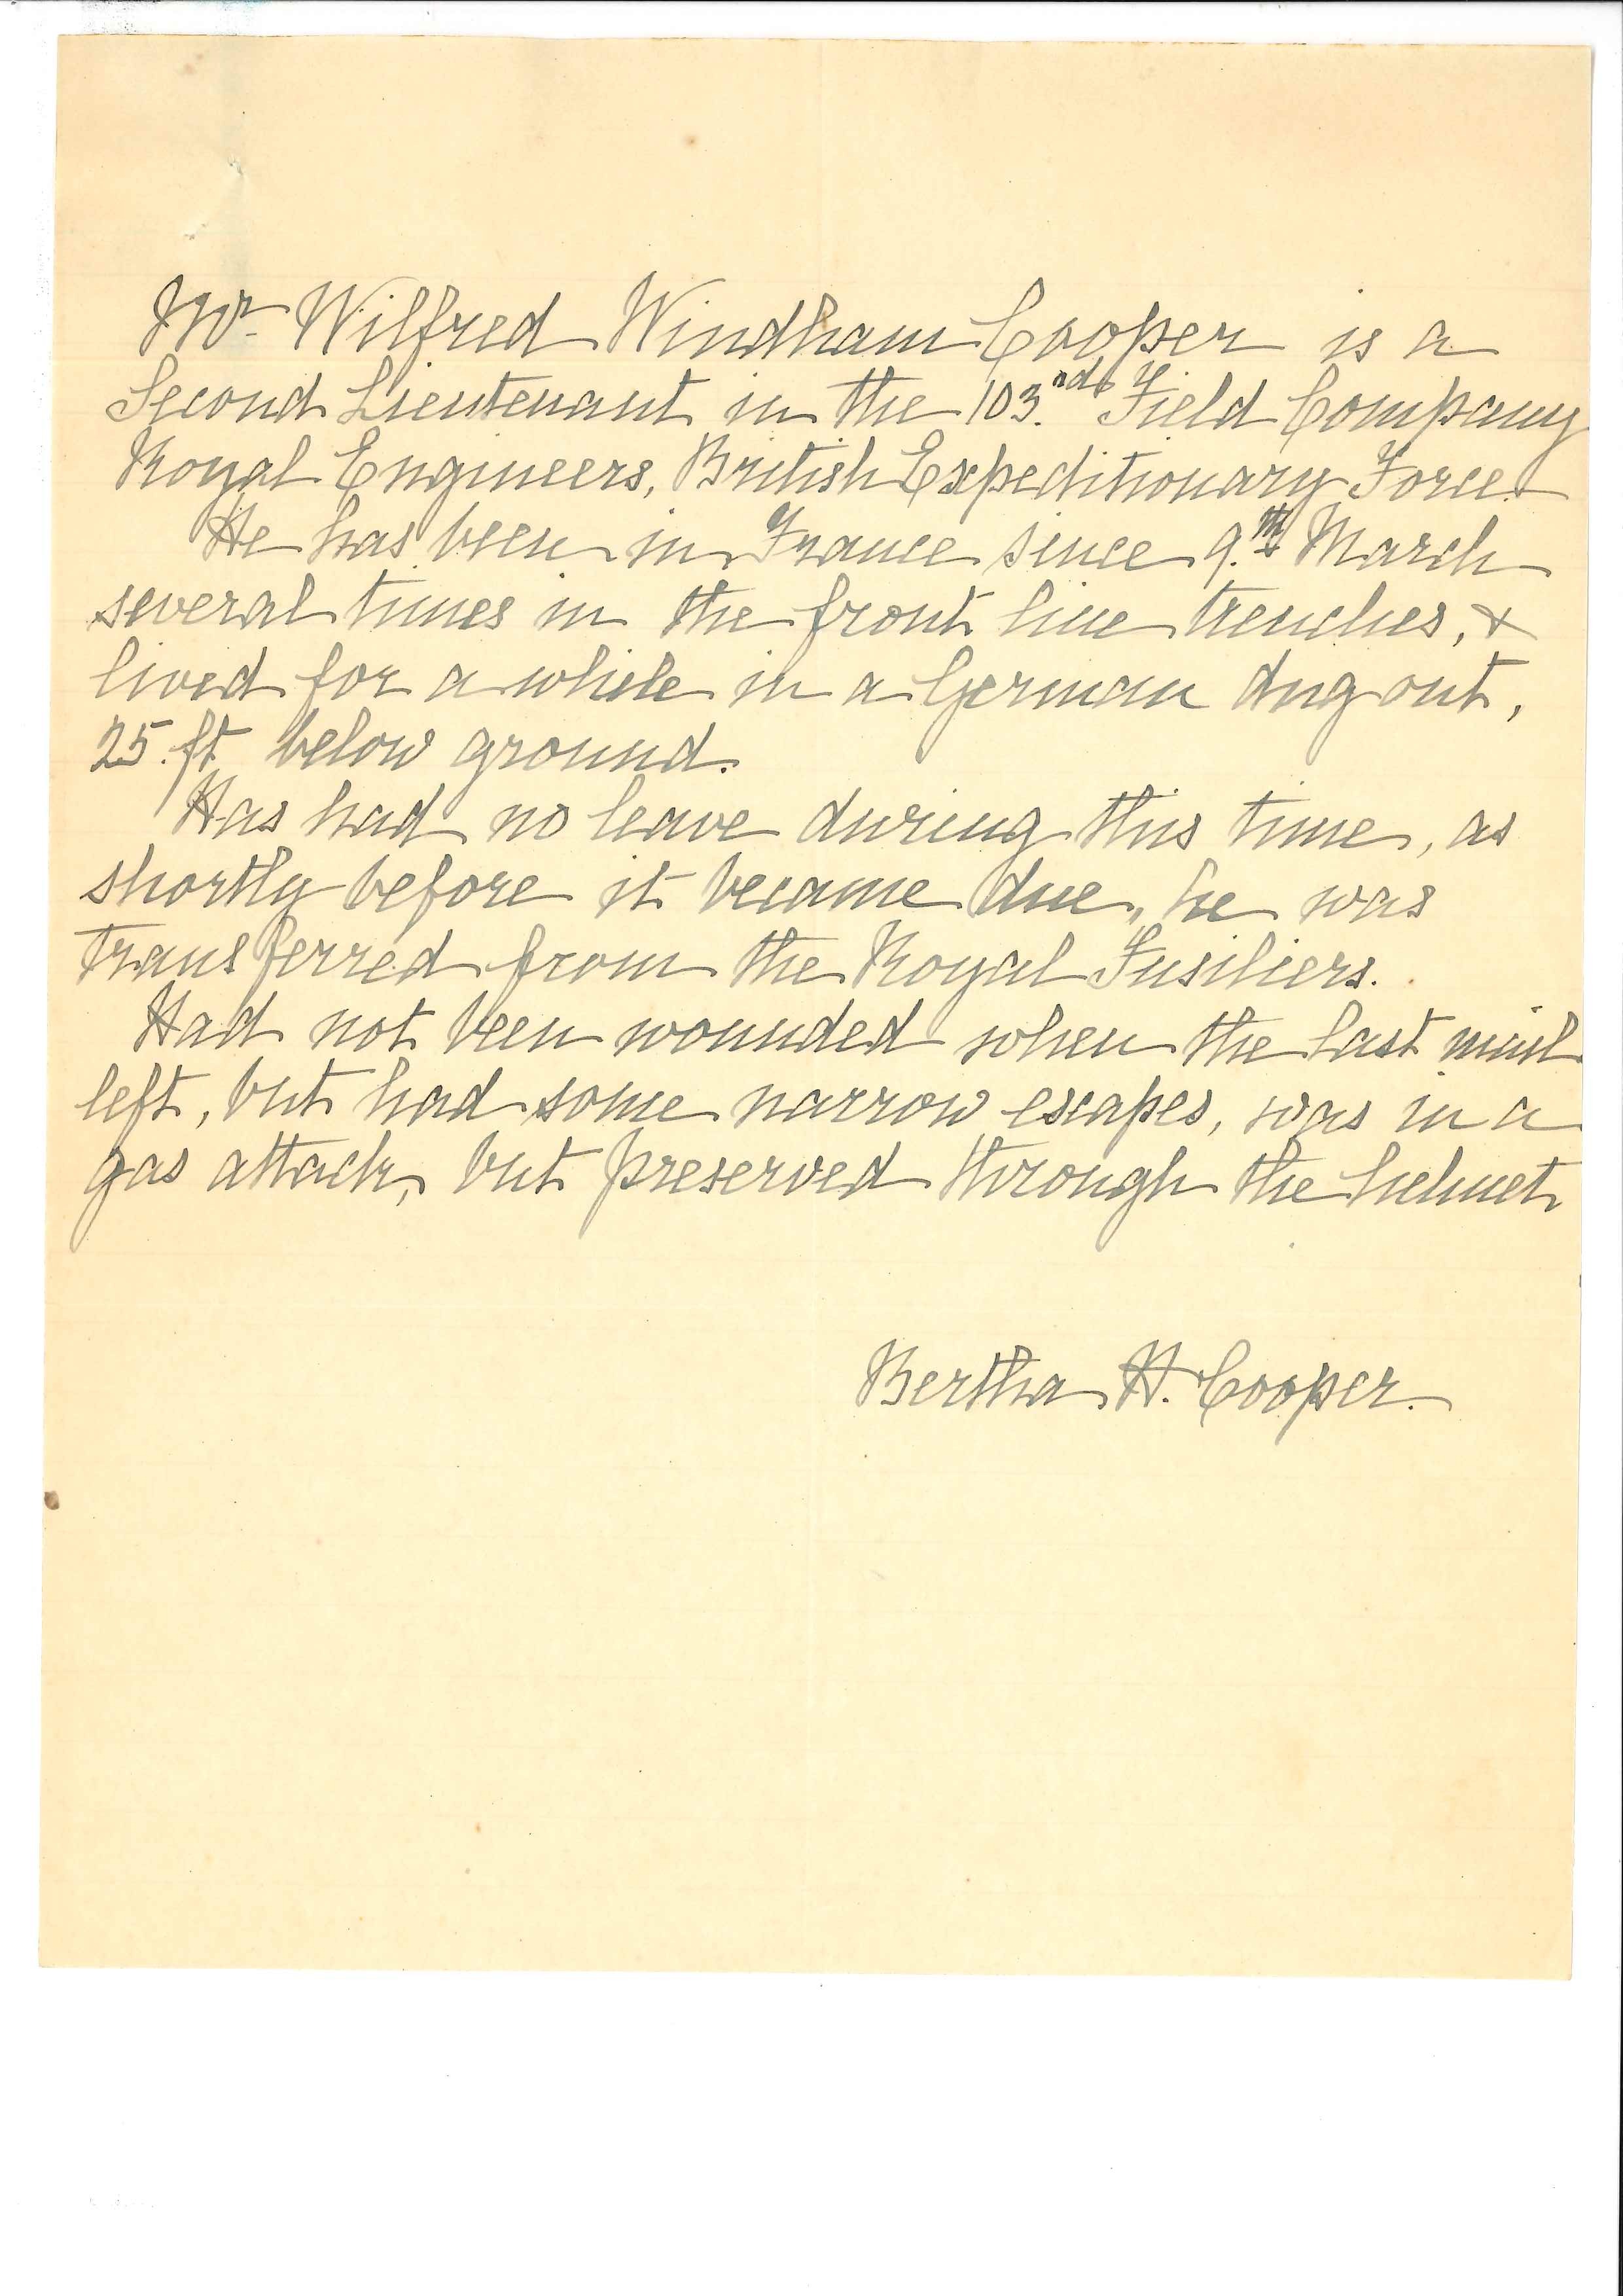 Mr Wilfred Windham Cooper is a
Second Lieutenant in the 103.nd Field Company
Royal Engineers, British Expeditionary Force.
He has been in France since 9.th March
several times in the front line trenches, &
lived for a while in a German dug out,
25 ft below ground.
Has had no leave during this time, as
shortly before it became due, he was
transferred from the Royal Fusiliers.
Had not been wounded when the last mail
left, but had some narrow escapes, was in a
gas attack, but preserved through the helmet
Bertha H. Cooper.